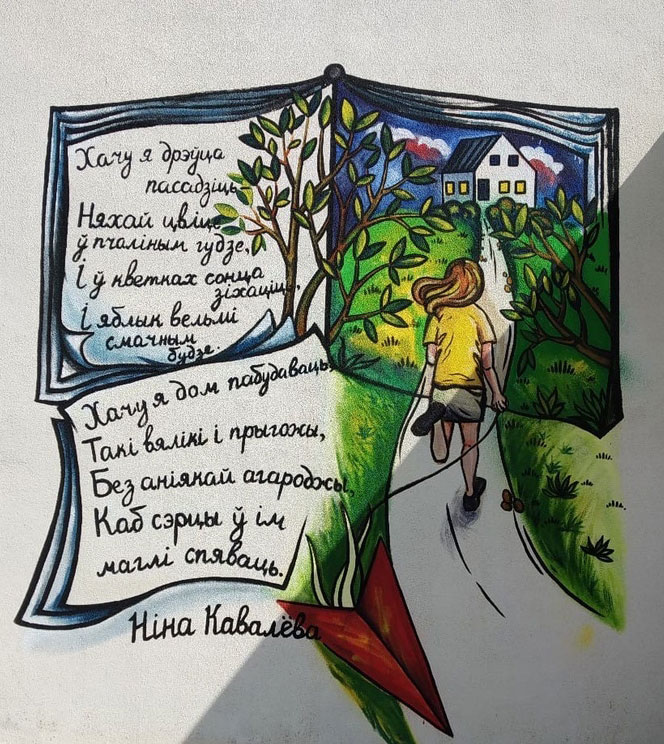 Хачу я дрэўца
пасадзіць
Няхай цвіце
ў пчаліным гудзе,
І ў кветках сонца
зіхаціць,
І яблык вельмі
смачным
будзе.
Хачу я дом пабудаваць,
Такі вялікі і прыгожы,
Без аніякай агароджы,
Каб сэрцы ў ім
маглі спяваць.
Ніна Кавалёва